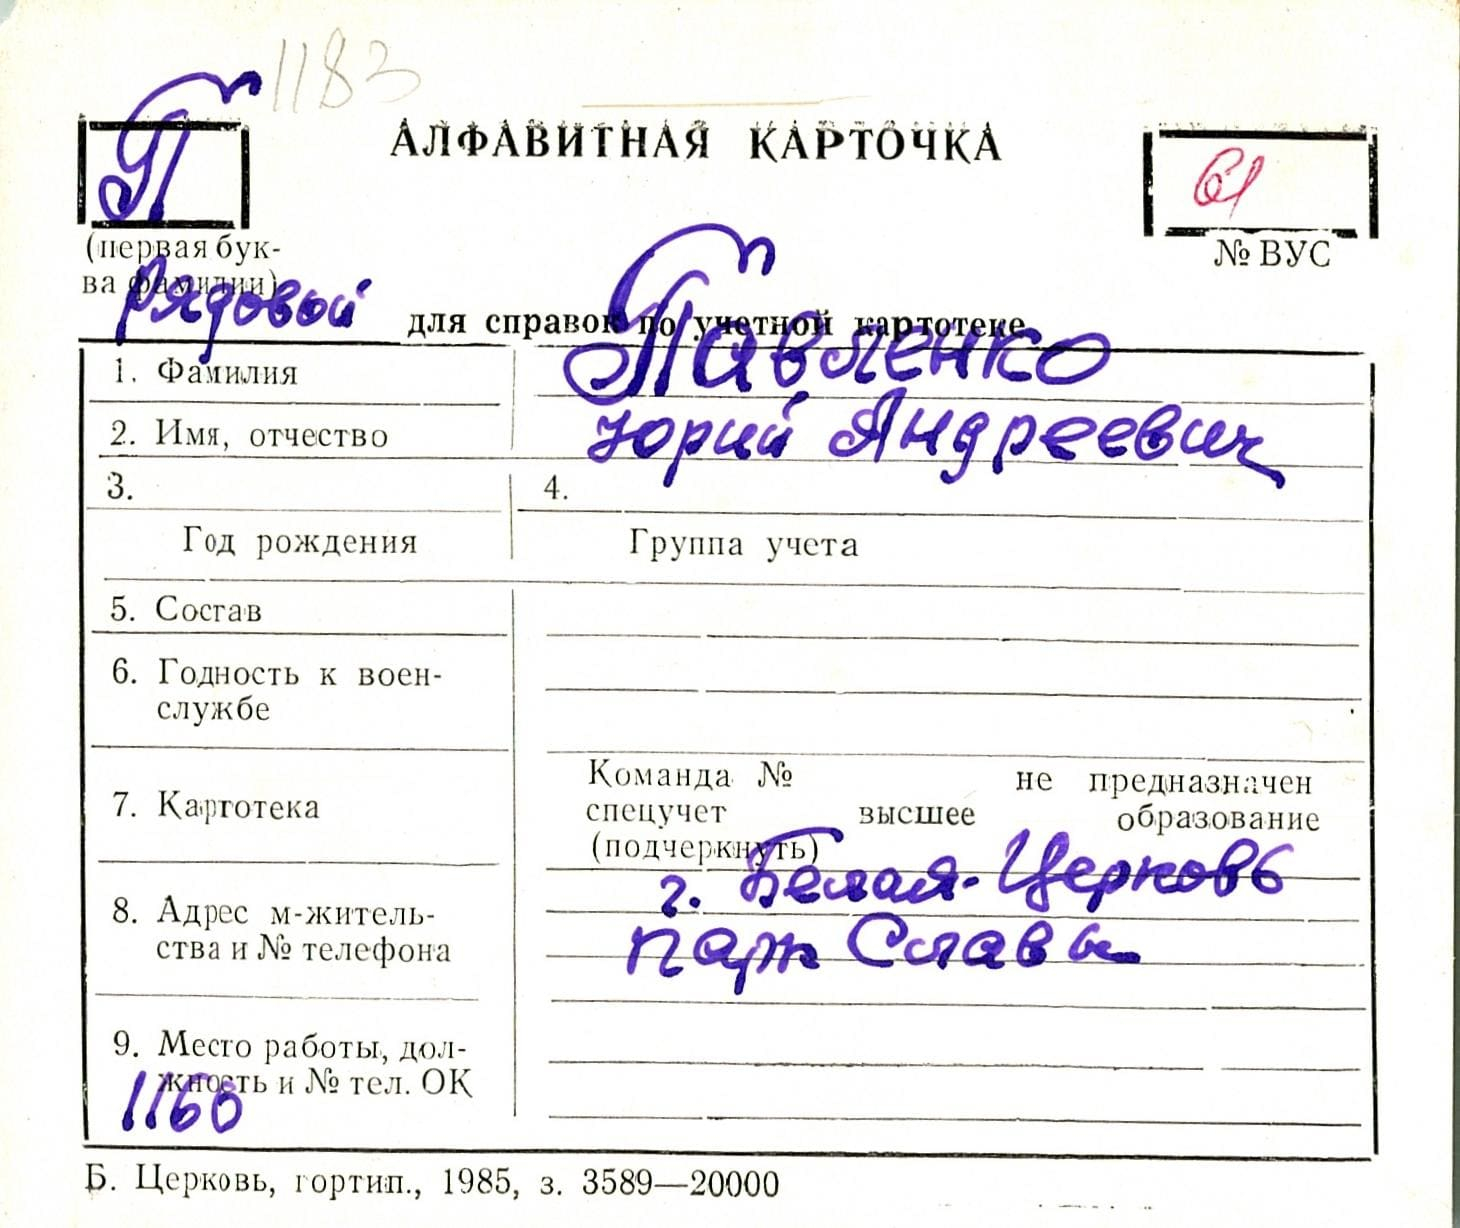 1183
П
АЛФАВИТНАЯ КАРТОЧКА
61
(первая бук-
ва фамилии)
№ ВУС
Рядовой
для справок по учетной картотеке
1. Фамилия
Павленко
2. Имя, отчество
Юрий Андреевич
3.
4.
Год рождения
Группа учета
5. Состав
6. Годность к воен-
службе
7. Картотека
Команда № не предназначен
спецучет высшее образование
(подчеркнуть)
8. Адрес м-житель-
ства и № телефона
г. Белая-Церковь
парк Славы
9. Место работы, дол-
жность и № тел. ОК
1160
Б. Церковь, гортип., 1985, з. 3589—20000